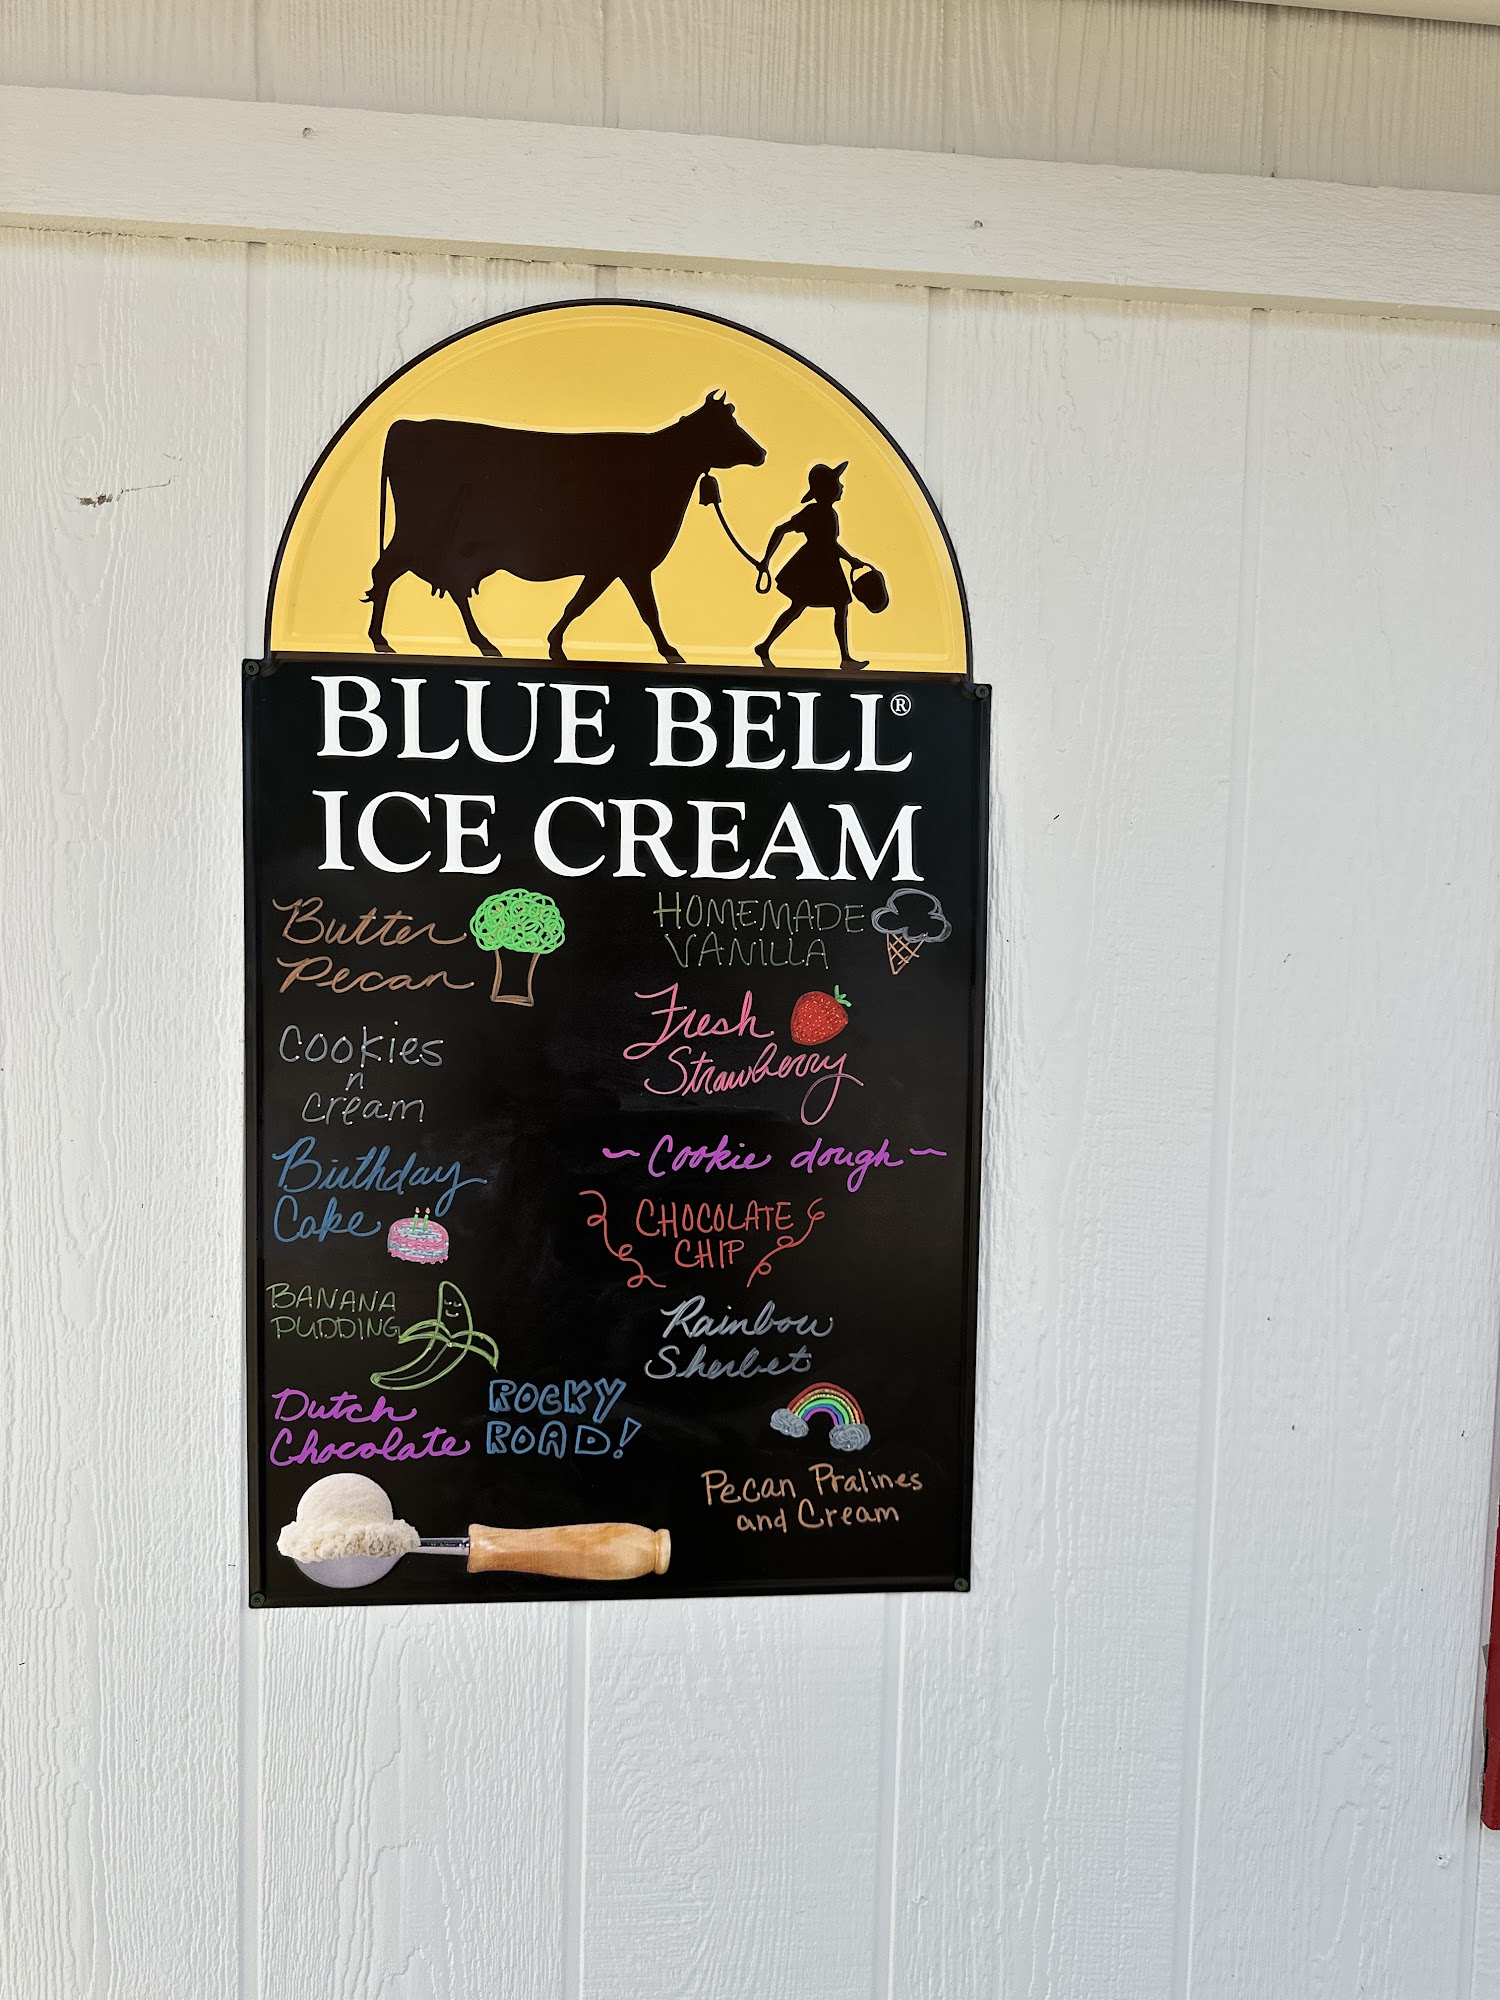 BLUE BELL®
ICE CREAM
Butter
Pecan
Cookies
n
cream
Birthday
Cake
BANANA
PUDDING
Dutch
Chocolate
ROCKY
ROAD!
HOMEMADE
VANILLA
Fresh
Strawberry
~ Cookie dough ~
CHOCOLATE
CHIP
Rainbow
Sherbet
Pecan Pralines
and Cream